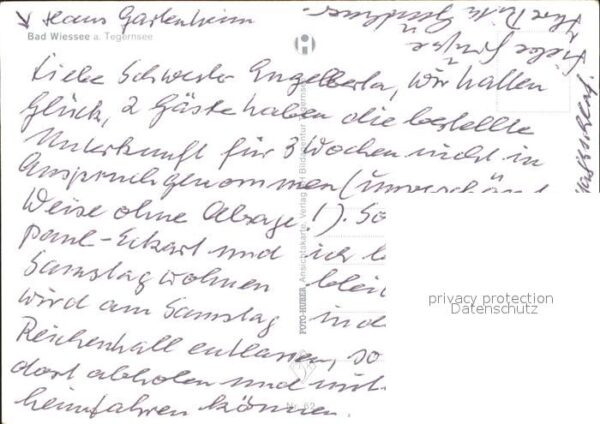 Haus Gartenheim
Bad Wiessee a. Tegernsee
Liebe Schwester Engelberta, wir hatten
Glück, 2 Gäste haben die bestellte
Unterkunft für 3 Wochen nicht in
Anspruch genommen (unverschämt
Weise ohne Absage!). So
Paul-Eckart und ich
Samstag wohnen bleib
wird am Samstag in d
Reichenhall entlassen, so
dort abholen und mit
heimfahren können.
Liebe Grüße
Ihre
FOTO-HUBER Ansichtskarte, Verlag
Nr. 62
privacy protection
Datenschutz